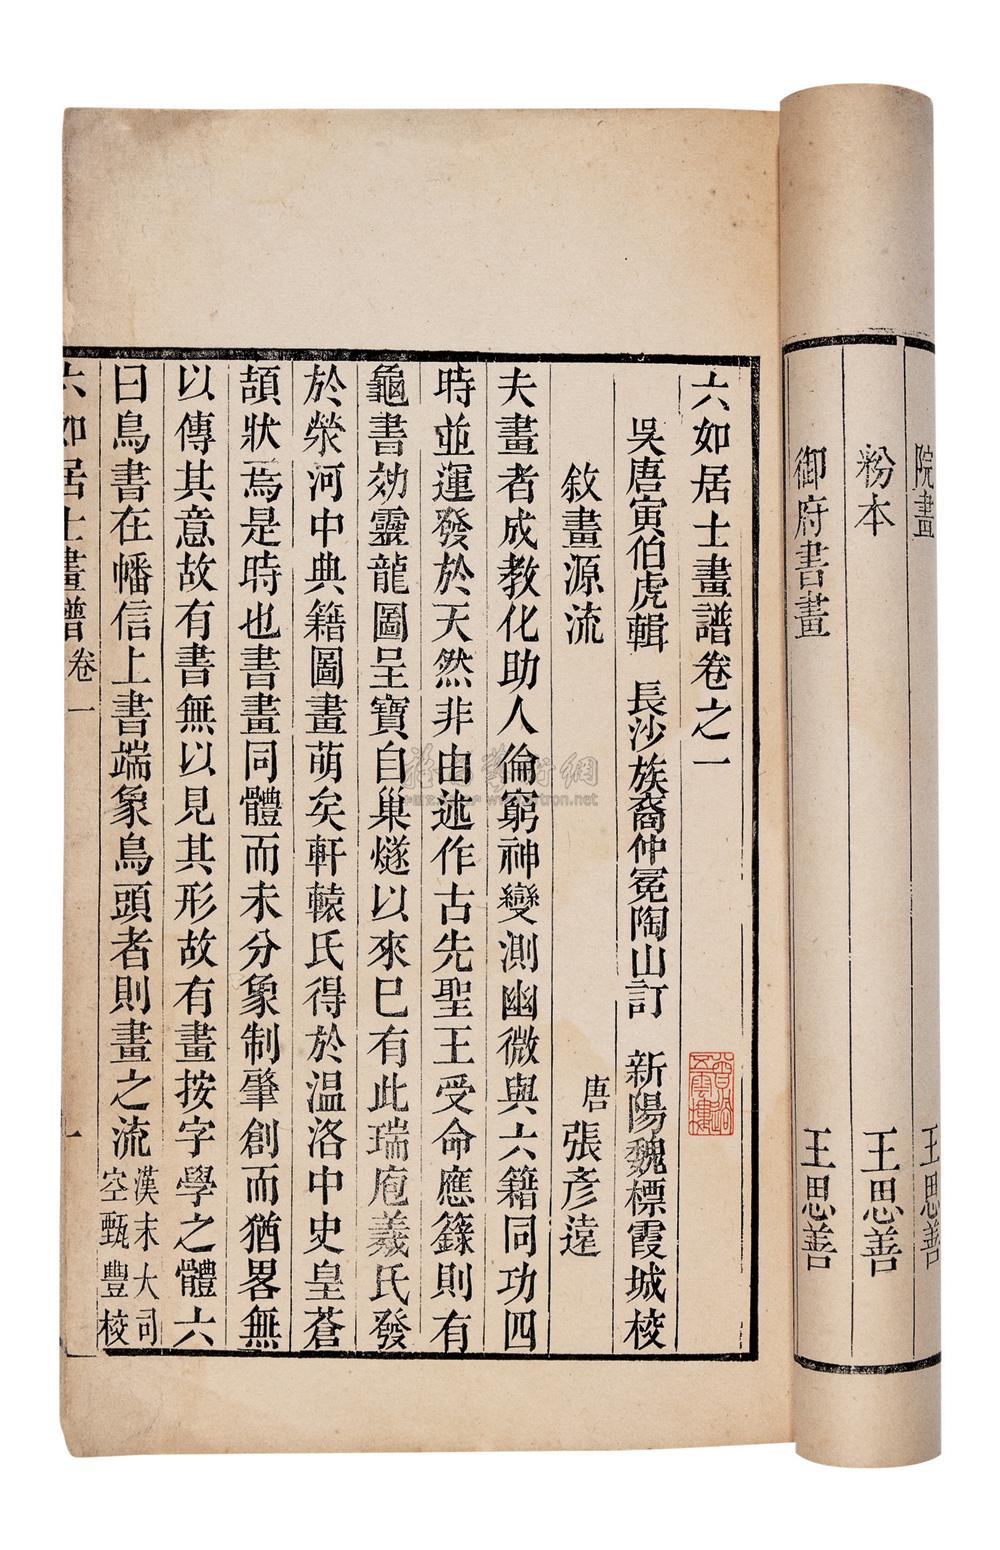 院畫 王思善
粉本 王思善
御府書畫 王思善
六如居士畫譜卷之一
吳唐寅伯虎輯 長沙族裔仲冕陶山訂 新陽魏標霞城校
敘畫源流 唐 張彥遠
夫畫者成教化助人倫窮神變測幽微與六籍同功四
時並運發於天然非由述作古先聖王受命應籙則有
龜書効靈龍圖呈寶自巢燧以來已有此瑞庖羲氏發
於滎河中典籍圖畫萌矣軒轅氏得於温洛中史皇蒼
頡狀焉是時也書畫同體而未分象制肇創而猶畧無
以傳其意故有書無以見其形故有畫按字學之體六
曰鳥書在幡信上書端象鳥頭者則畫之流漢末大司
空甄豐校
六如居士畫譜 卷一 一